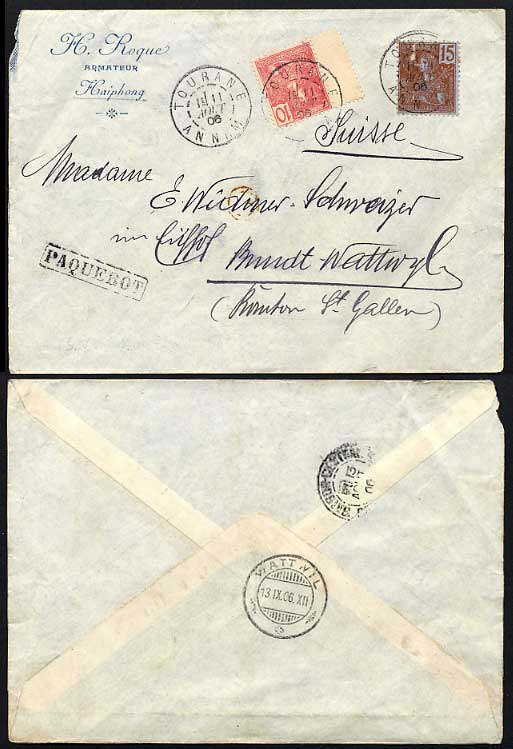 H. Roque
ARMATEUR
Haiphong
TOURANE
11
AOUT
06
ANNAM
TOURANE
10
TOURANE
15
06
ANNAM
Suisse
Madame
E Widmer-Schweizer
im
Bundt Wattwyl
(Kanton St Gallen)
PAQUEBOT
CENTRAL
06
WATTWIL
13.IX.06.XII